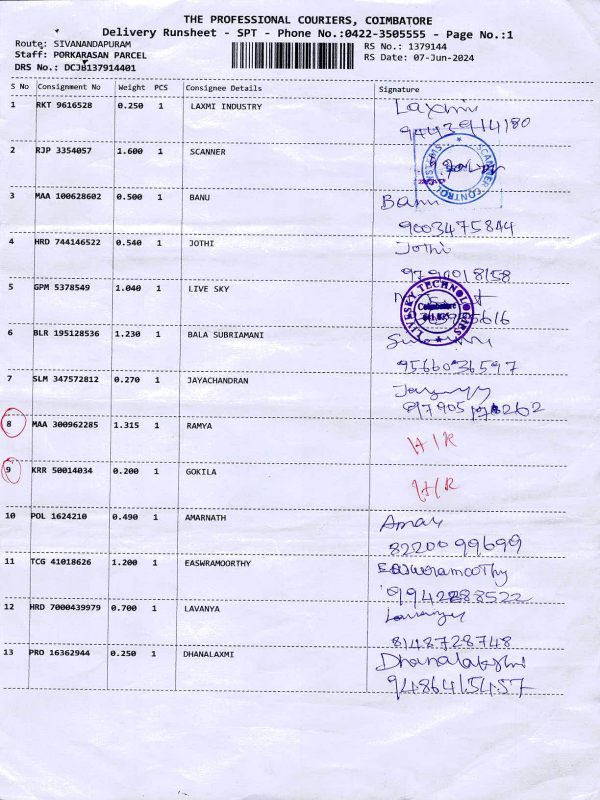 THE PROFESSIONAL COURIERS, COIMBATORE
Delivery Runsheet - SPT - Phone No.:0422-3505555 - Page No.:1
Route: SIVANANDAPURAM
RS No.: 1379144
Staff: PORKARASAN PARCEL
RS Date: 07-Jun-2024
DRS No.: DCJB137914401
S No Consignment No Weight PCS Consignee Details Signature
1 RKT 9616528 0.250 1 LAXMI INDUSTRY Laxmi
2 RJP 3354057 1.600 1 SCANNER
SCANNER CONTROL SYSTEMS
3 MAA 100628602 0.500 1 BANU Banu
9003475844
4 HRD 744146522 0.540 1 JOTHI Jothi
5 GPM 5378549 1.040 1 LIVE SKY
LIVESKY TECHNOLOGIES
Coimbatore
6 BLR 195128536 1.230 1 BALA SUBRIAMANI
9566036597
7 SLM 347572812 0.270 1 JAYACHANDRAN
8 MAA 300962285 1.315 1 RAMYA H/R
9 KRR 50014034 0.200 1 GOKILA H/R
10 POL 1624210 0.490 1 AMARNATH Amar
8220099699
11 TCG 41018626 1.200 1 EASWRAMOORTHY Easweramoorthy
9942288522
12 HRD 7000439979 0.700 1 LAVANYA Lavanya
8148728748
13 PRO 16362944 0.250 1 DHANALAXMI Dhanalakshmi
9486415457